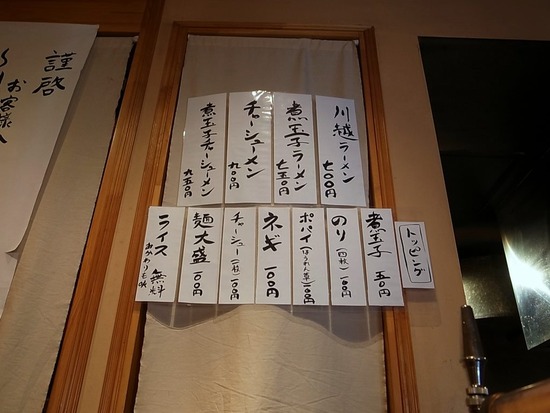 川越ラーメン 七00円
煮玉子ラーメン 七五0円
チャーシューメン 九00円
煮玉子チャーシューメン 九五0円
トッピング
煮玉子 五0円
のり（四枚）一00円
ポパイ（ほうれん草）一00円
ネギ 一00円
チャーシュー（一枚）一00円
麺大盛 一00円
ライス 無料
謹啓
お客様へ